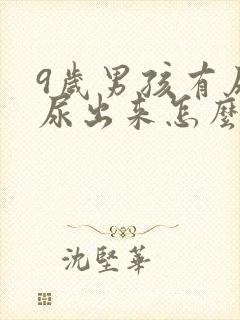 9歲男孩有尿
尿出來怎麼
沈堅華